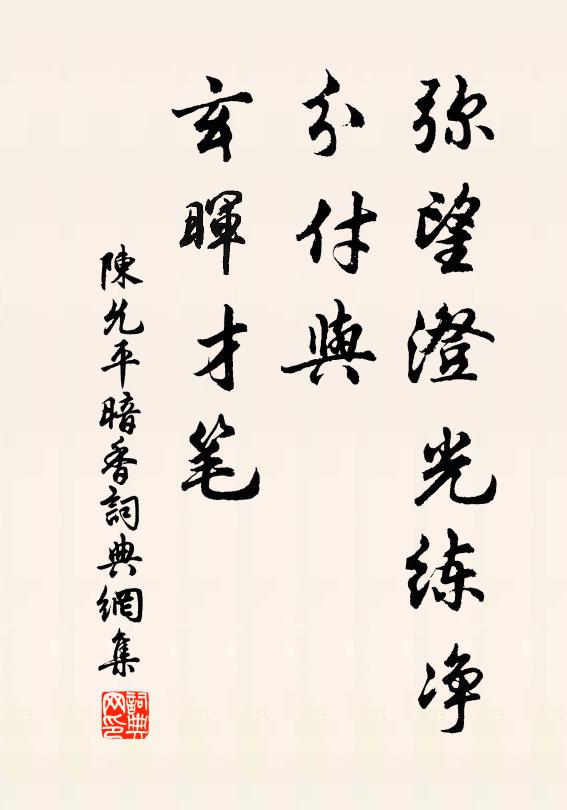 弥望澄光练净
分付與
玄暉才笔
陳允平暗香詞典網集
詞典网印